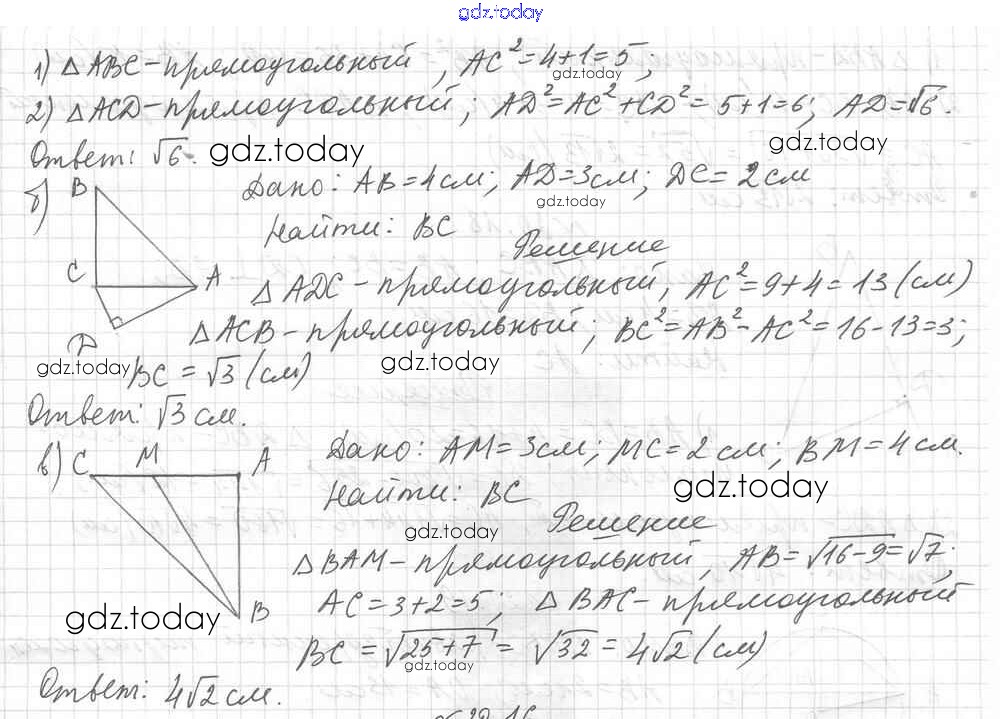 gdz.today
1) △ABC-прямоугольный, AC²=4+1=5;
gdz.today
2) △ACD-прямоугольный; AD²=AC²+CD²=5+1=6; AD=√6.
Ответ: √6. gdz.today gdz.today
б) B Дано: AB=4см; AD=3см; DC=2см
gdz.today
Найти: BC
Решение
C A △ADC-прямоугольный, AC²=9+4=13(см)
D △ACB-прямоугольный; BC²=AB²-AC²=16-13=3;
gdz.today BC=√3(см) gdz.today
Ответ: √3см.
в) C M A Дано: AM=3см; MC=2см; BM=4см.
Найти: BC gdz.today
gdz.today Решение
△BAM-прямоугольный, AB=√16-9=√7;
gdz.today B AC=3+2=5; △BAC-прямоугольный
BC=√25+7=√32=4√2(см)
gdz.today
Ответ: 4√2см.